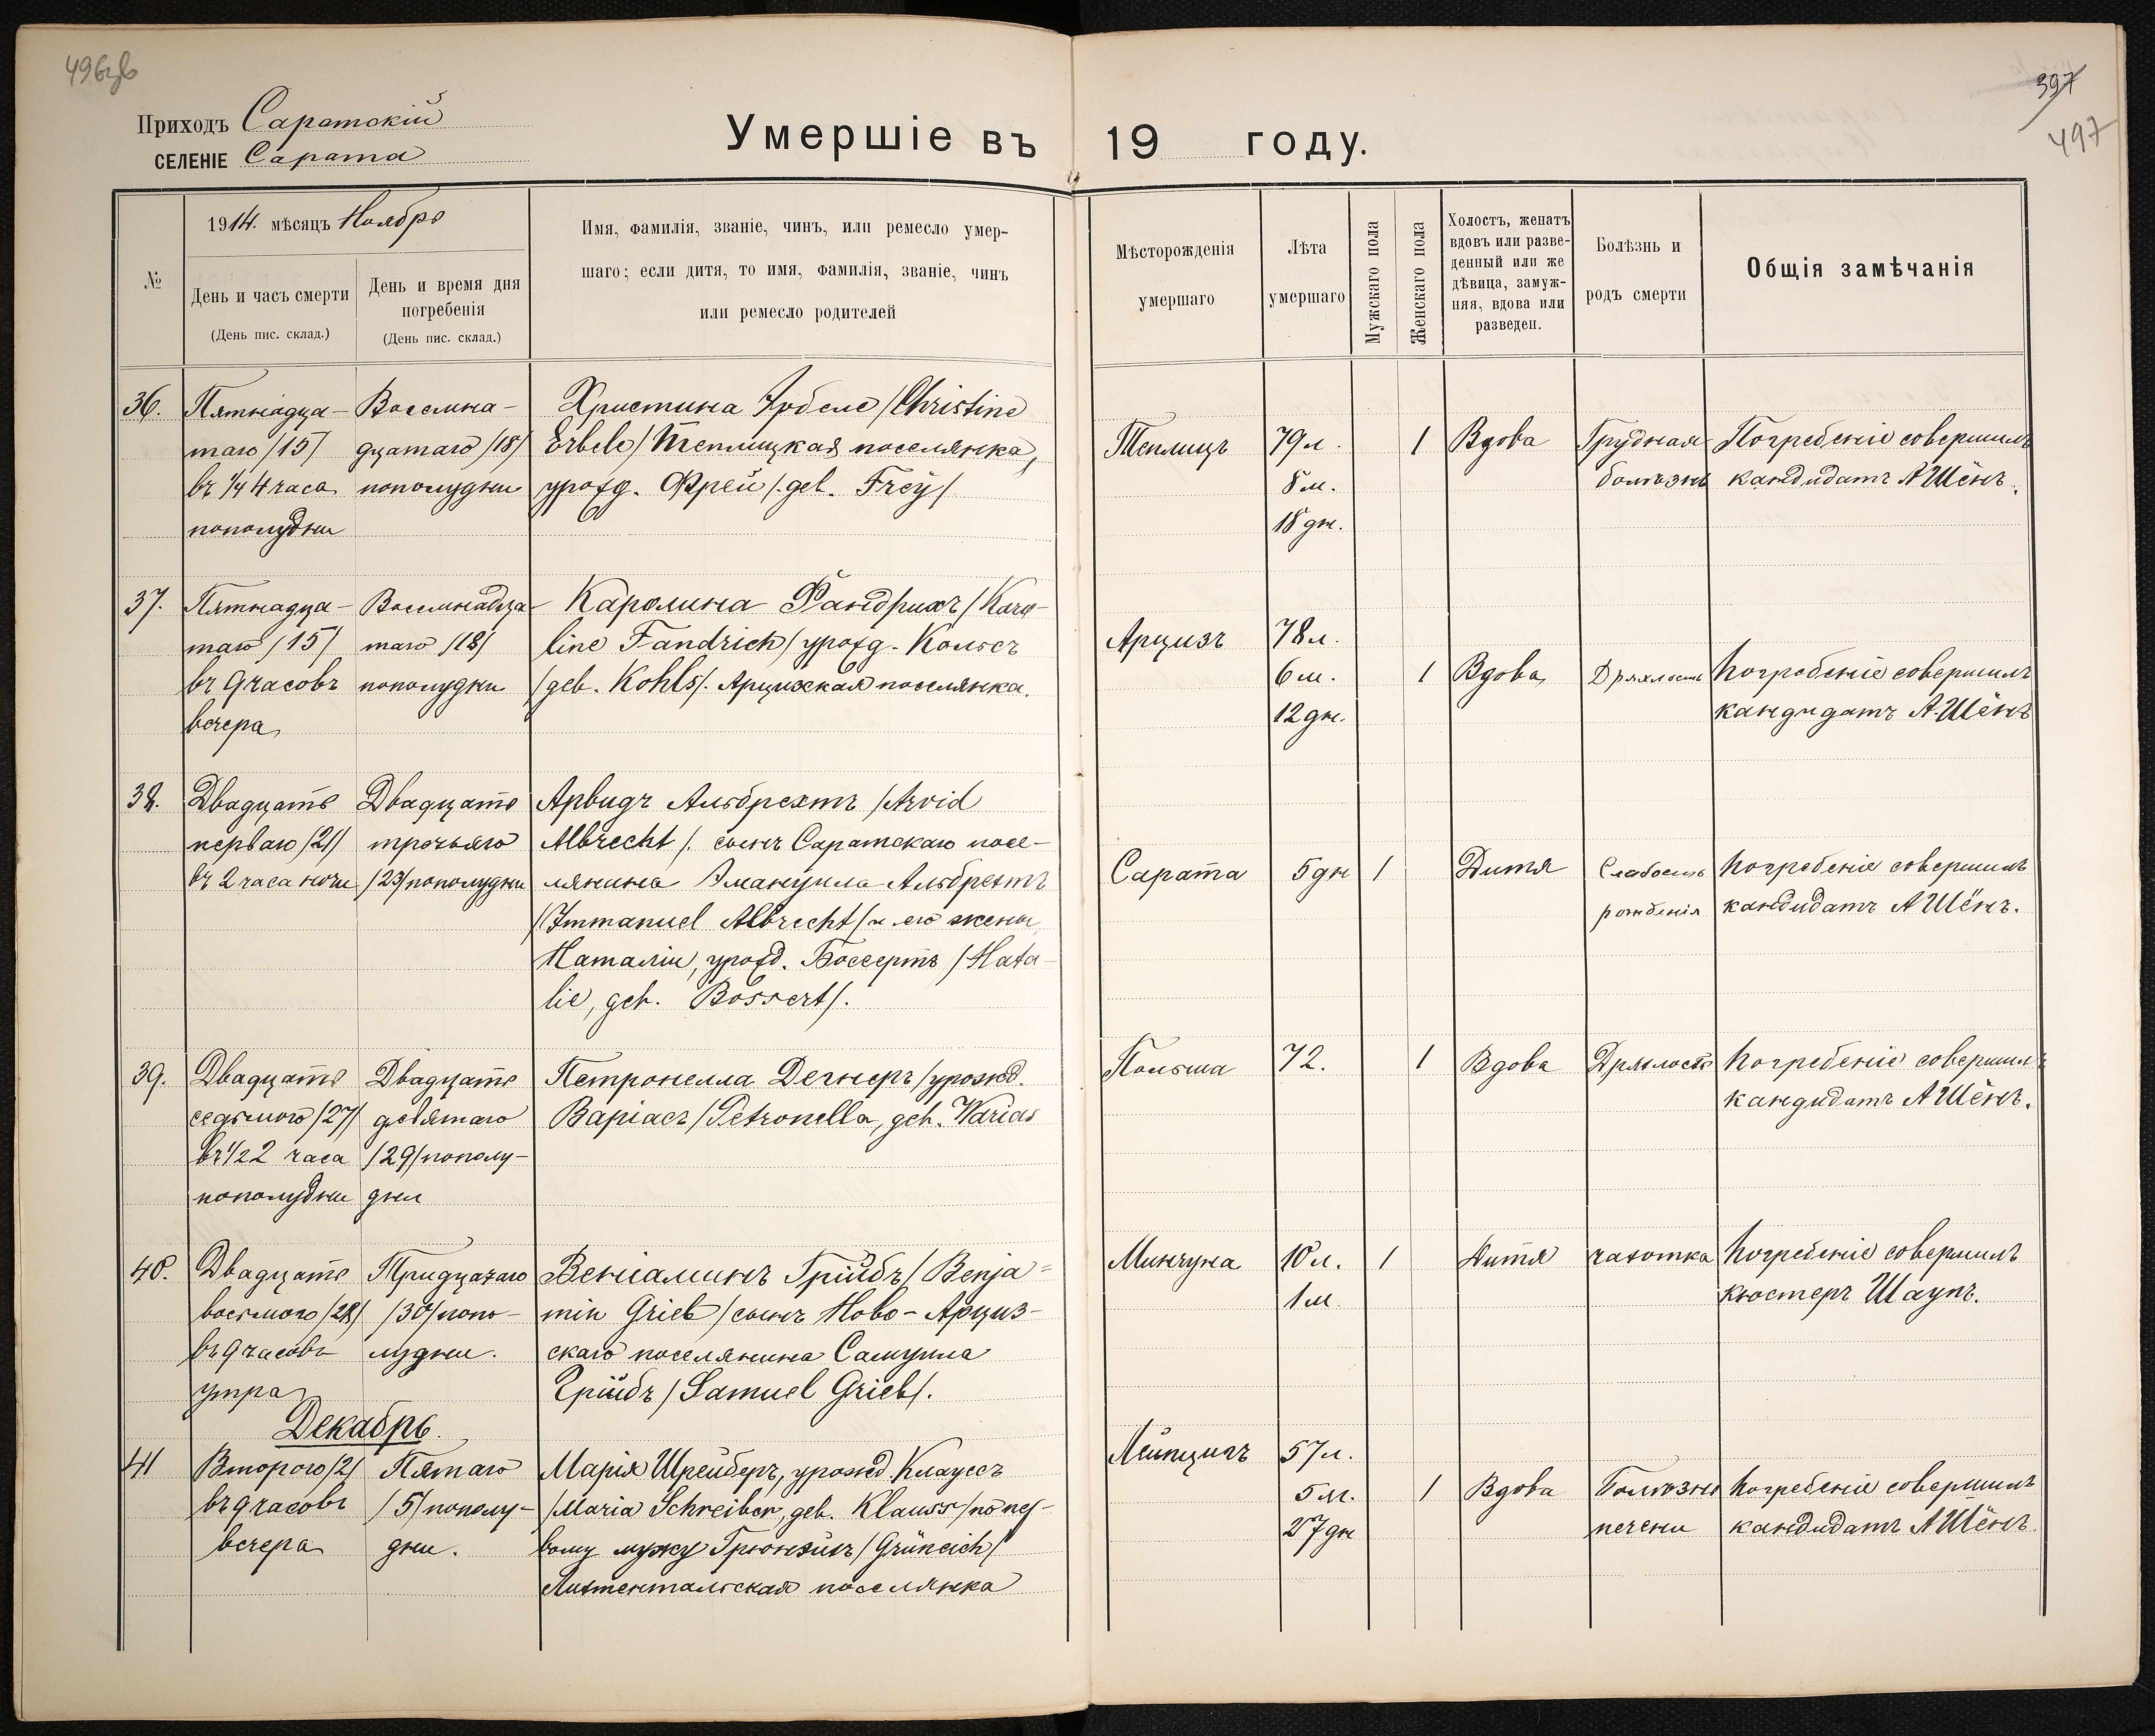 Приходъ Саратскій
СЕЛЕНІЕ Сарата
Умершіе въ 19 году.
397
497
№
1914. мѣсяцъ Ноябрь
День и часъ смерти
(День пис. склад.)
День и время дня
погребенія
(День пис. склад.)
Имя, фамилія, званіе, чинъ, или ремесло умер-
шаго; если дитя, то имя, фамилія, званіе, чинъ
или ремесло родителей
Мѣсторожденія
умершаго
Лѣта
умершаго
Мужскаго пола
Женскаго пола
Холостъ, женатъ
вдовъ или разве-
денный или же
дѣвица, замуж-
няя, вдова или
разведен.
Болѣзнь и
родъ смерти
Общія замѣчанія
36.
Пятнадца-
таго /15/
въ 1/4 4 часа
пополудни
Восемна-
дцатаго /18/
пополудни
Христина Эрбеле /Christine
Erbele/ Теплицкая поселянка,
урожд. Фрей /geb. Frey/
Теплицъ
79 л.
8 м.
18 дн.
1
Вдова
Грудная
болѣзнь
Погребеніе совершилъ
кандидатъ А Шёнъ.
37.
Пятнадца-
таго /15/
въ 9 часовъ
вечера
Восемнадца-
таго /18/
пополудни
Каролина Фандрихъ /Karo-
line Fandrich/ урожд. Кольсъ
/geb. Kohls/. Арцизская поселянка.
Арцизъ
78 л.
6 м.
12 дн.
1
Вдова
Дряхлость
Погребеніе совершилъ
кандидатъ А. Шёнъ
38.
Двадцать
перваго /21/
въ 2 часа ночи
Двадцать
третьяго
/23/ пополудни
Арвидъ Альбрехтъ /Arvid
Albrecht/. сынъ Саратскаго посе-
лянина Эмануила Альбрехтъ
/Immanuel Albrecht/ и его жены
Наталіи, урожд. Боссертъ /Nata-
lie, geb. Bossert/.
Сарата
5 дн
1
Дитя
Слабость
рожденія
Погребеніе совершилъ
кандидатъ А Шёнъ.
39.
Двадцать
седьмого /27/
въ 1/2 2 часа
пополудни
Двадцать
девятаго
/29/ пополу-
дни
Петронелла Дегнеръ /урожд.
Варіасъ /Petronella, geb. Warias
Польша
72.
1
Вдова
Дряхлость
Погребеніе совершилъ
кандидатъ А Шёнъ.
40.
Двадцать
восьмого /28/
въ 9 часовъ
утра
Тридцатаго
/30/ попо-
лудни.
Веніаминъ Грійбъ /Benja=
min Grieb/ сынъ Ново-Арциз-
скаго поселянина Самуила
Грійбъ /Samuel Grieb/.
Минчуна
10 л.
1 м.
1
Дитя
чахотка
Погребеніе совершилъ
кюстеръ Шаупъ.
Декабрь.
41
Второго /2/
въ 9 часовъ
вечера
Пятаго
/5/ пополу-
дни.
Марія Шрейберъ, урожд. Клауссъ
/Maria Schreiber, geb. Klauss/ по пер-
вому мужу Грюнэйхъ /Grüneich/
Лихтентальская поселянка
Лейпцигъ
57 л.
5 м.
27 дн
1
Вдова
Болѣзнь
печени
Погребеніе совершилъ
кандидатъ А Шёнъ.